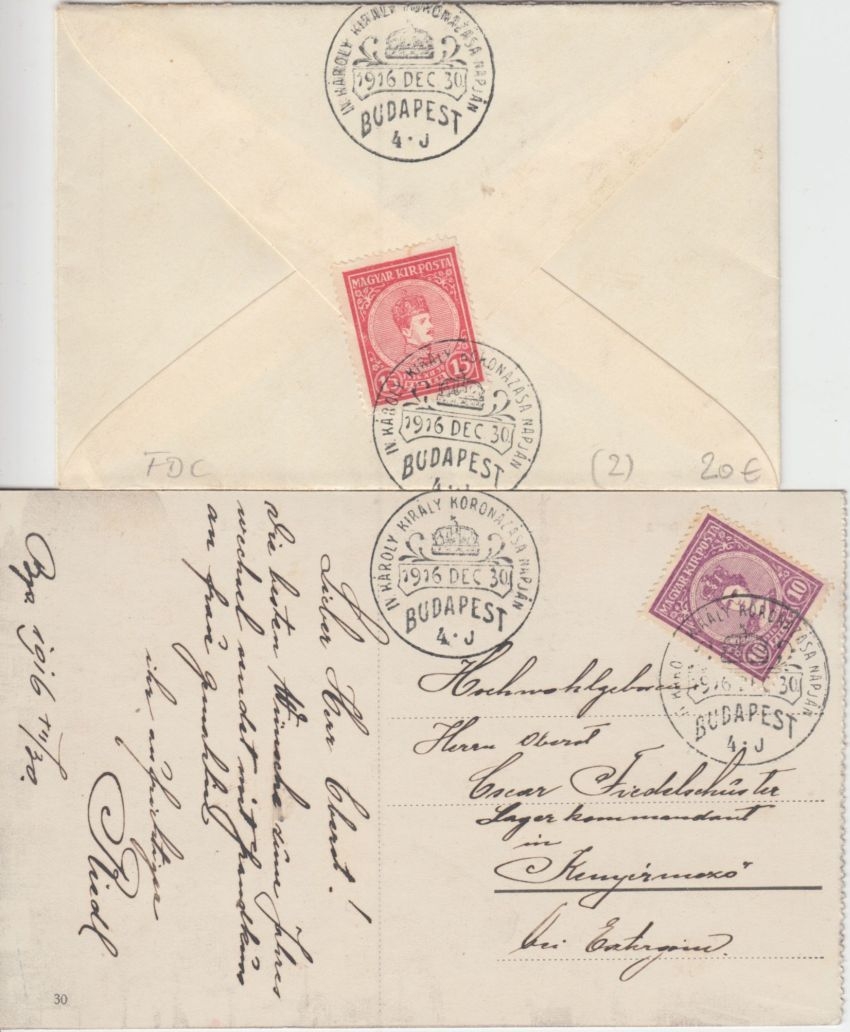 IV KÁROLY KIRÁLY KORONÁZÁSA NAPJÁN
1916 DEC 30
BUDAPEST
4 · J
MAGYAR KIR. POSTA
15
IV KÁROLY KIRÁLY KORONÁZÁSA NAPJÁN
1916 DEC 30
BUDAPEST
4 · J
FDC
(2)
20 €
IV KÁROLY KIRÁLY KORONÁZÁSA NAPJÁN
1916 DEC 30
BUDAPEST
4 · J
MAGYAR KIR. POSTA
10
10
IV KÁRO KIRÁLY KORONÁZÁSA NAPJÁN
1916 DEC 30
BUDAPEST
4 · J
Hochwohlgeboren
Herrn Oberst
Oscar Fiedelschuster
Lagerkommandant
in
Kenyérmező"
bei Esztergom.
Lieber Herr Oberst!
Die besten Wünsche zum Jahres
wechsel sendet mit Handkuss
an Frau Gemahlin
ihr aufrichtiger
Riedl
Bpa 1916 XII/30.
30